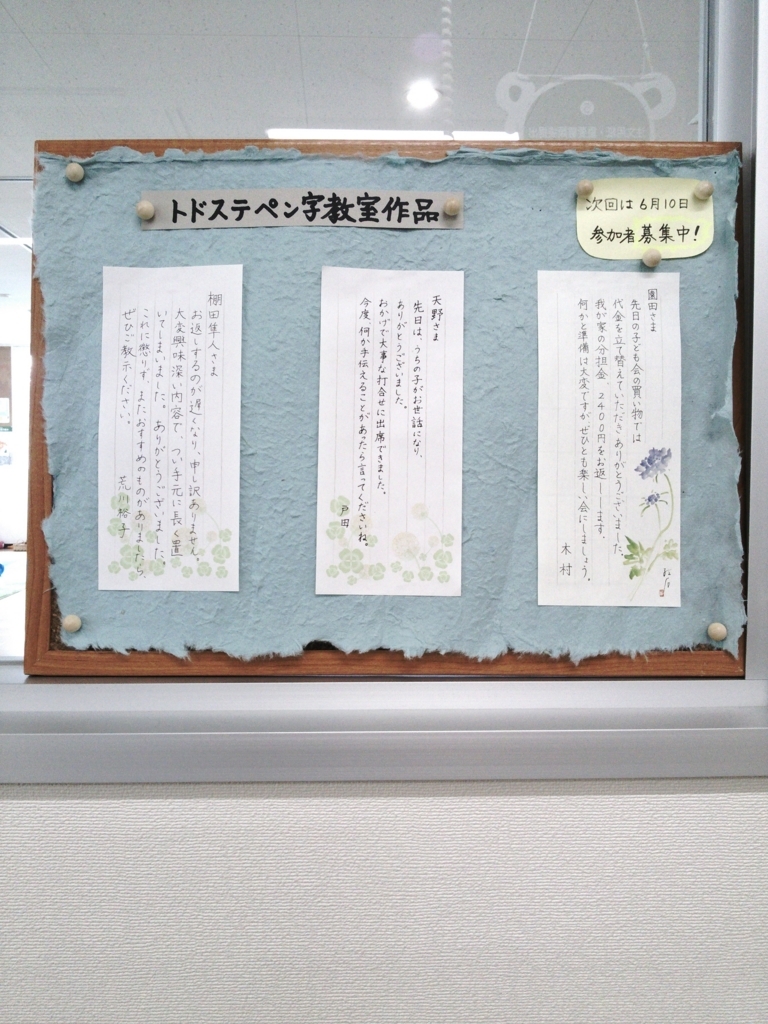 トドステペン字教室作品
次回は6月10日
参加者募集中!
園田さま
先日の子ども会の買い物では
代金を立て替えていただきありがとうございました。
我が家の分担金、2400円をお返しします。
何かと準備は大変ですがぜひとも楽しい会にしましょう。
木村
天野さま
先日は、うちの子がお世話になり、
ありがとうございました。
おかげで大事な打合せに出席できました。
今度、何か手伝えることがあったら言ってくださいね。
戸田
棚田隼人さま
お返しするのが遅くなり、申し訳ありません。
大変興味深い内容で、つい手元に長く置
いてしまいました。ありがとうございました。
これに懲りず、またおすすめのものがありましたら、
ぜひご教示ください。
荒川裕子